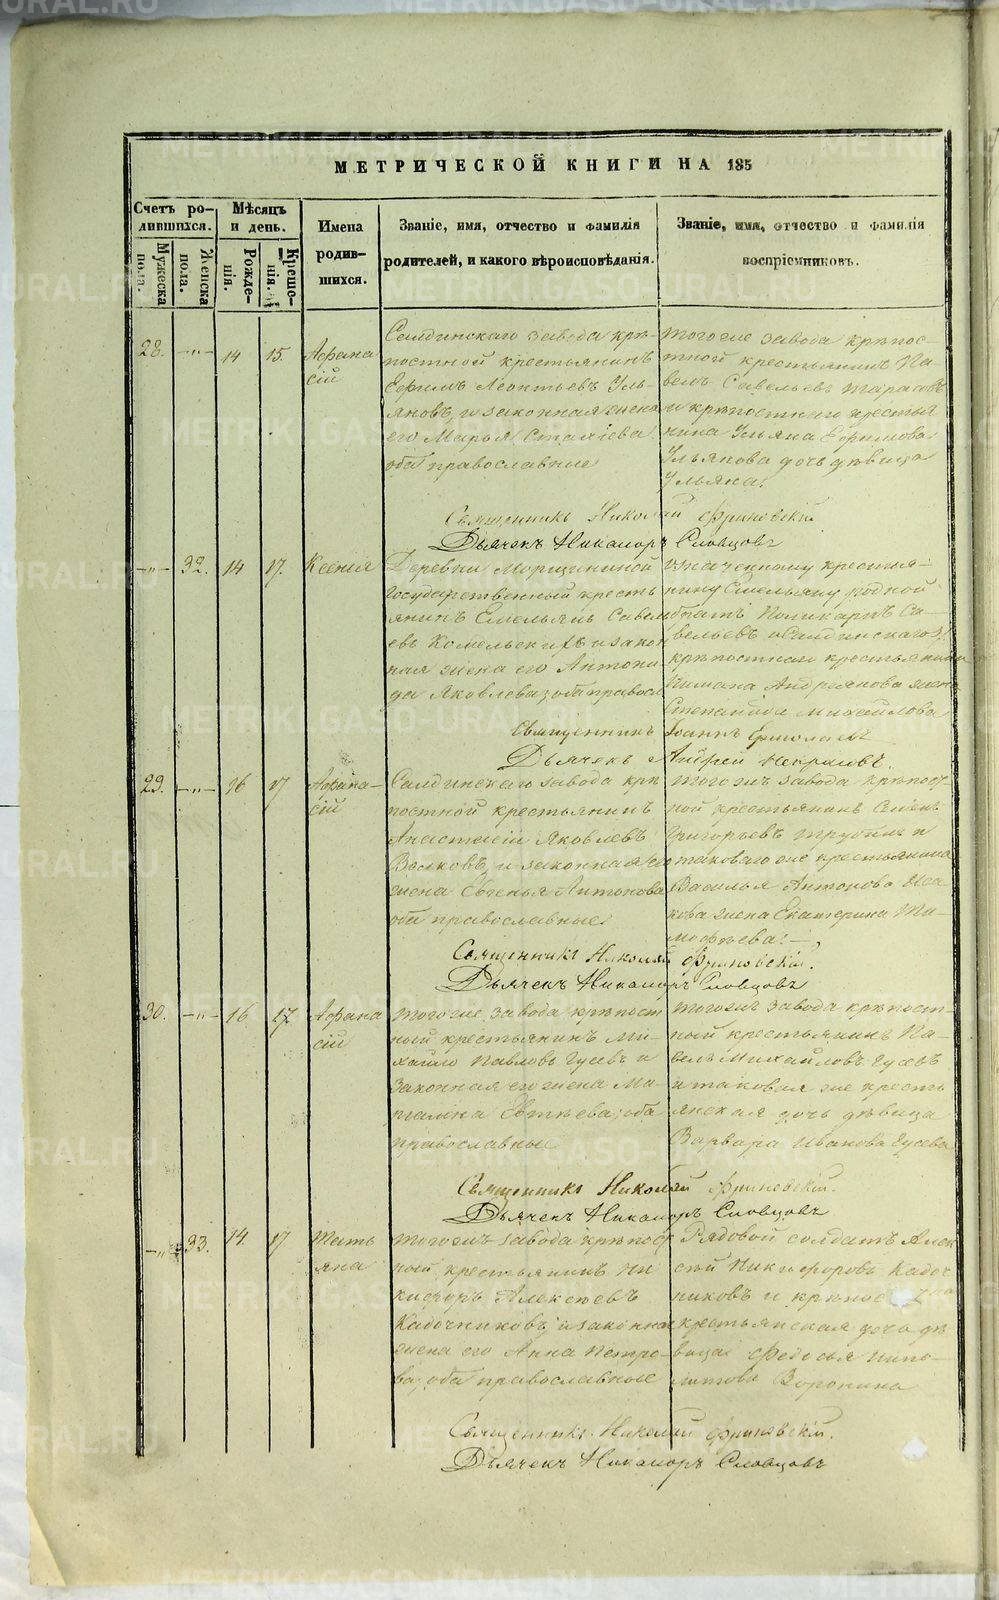 МЕТРИЧЕСКОЙ КНИГИ НА 185
Счетъ ро-
дившихся.
Мѣсяцъ
и день.
Мужеска
пола.
Женска
пола.
Рожде-
нія.
Креще-
нія.
Имена
родив-
шихся.
Званіе, имя, отчество и фамилія
родителей, и какого вѣроисповѣданія.
Званіе, имя, отчество и фамилія
воспріемниковъ.
28. —„— 14 15. Афана
сій
Салдинскаго завода крѣ-
постной крестьянинъ
Ефимъ Леонтьевъ Уль-
яновъ, и законная жена
его Марья
оба православные
Тогоже завода крѣпос-
тной крестьянинъ Па-
велъ Савельевъ Тарасовъ
и крѣпостнаго крестья
нина Ульяна Ефимова
Ульянова дочь дѣвица
Ульяна.
Священникъ Николай Фриновскій
Дьячекъ Никаноръ Словцовъ
—„— 32. 14 17. Ксенія
Деревни
Государственный кресть
янинъ Емельянъ Савель
евъ и закон
ная жена его Антони
да Яковлева, оба правосл
крестья-
нину Емельяну родной
братъ Поликарпъ Са-
вельевъ и Салдинскаго з.
крѣпостнаго крестьянина
Пимана Андреянова жена
Степанида Михайлова
Священникъ Іоаннъ Ермолаевъ
Дьячекъ Андрей Некрасовъ.
29. —„— 16 17 Афана-
сій
Салдинскаго завода крѣ
постной крестьянинъ
Анастасій Яковлевъ
Волковъ, и законная его
жена Евгенья Антонова
оба православные.
Тогожъ завода крѣпост
ной крестьянинъ Семенъ
Григорьевъ Трубинъ и
таковаго же крестьянина
Василья Антонова Иса
кова жена Екатерина Ти-
мофѣева.
Священникъ Николай Фриновскій.
Дьячекъ Никаноръ Словцовъ
30. —„— 16 17. Афана
сій
Тогоже завода крѣпост
ный крестьянинъ Ми-
хайло Павловъ Гусевъ и
законная его жена Ма-
оба
православные
Тогожъ завода крѣпост-
ный крестьянинъ Па-
велъ Михайловъ Гусевъ
и таковая же кресть
янская дочь дѣвица
Варвара Иванова Гусева
Священникъ Николай Фриновскій.
Дьячекъ Никаноръ Словцовъ
—„— 33. 14. 17 Тать
яна
Тогожъ завода крѣпост
ный крестьянинъ Ни
кифоръ Алексѣевъ
Кадочниковъ, и законная
жена его Анна Петро-
ва, оба православные
Рядовой солдатъ Алек
сѣй Никифоровъ Кадоч
никовъ и крѣпос
крестьянская дочь дѣ
вица Федосья Иппо-
литова Воронина
Священникъ Николай Фриновскій.
Дьячекъ Никаноръ Словцовъ
METRIKI.GASO-URAL.RU